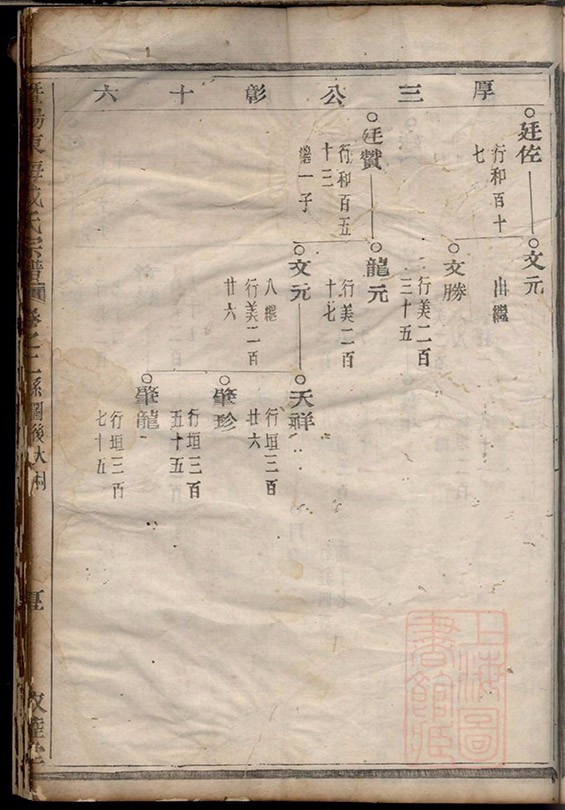 厚三公彰十六
廷佐
行和百十
七
文元
出繼
文勝
行美二百
三十五
廷贊
行和百五
十三
繼一子
龍元
行美二百
十七
文元
入繼
行美二百
廿六
天祥
行垣三百
廿六
肇珍
行垣三百
五十五
肇龍
行垣三百
七十五
暨陽東海戚氏宗譜 卷之二 系圖後大房
上海圖書館藏